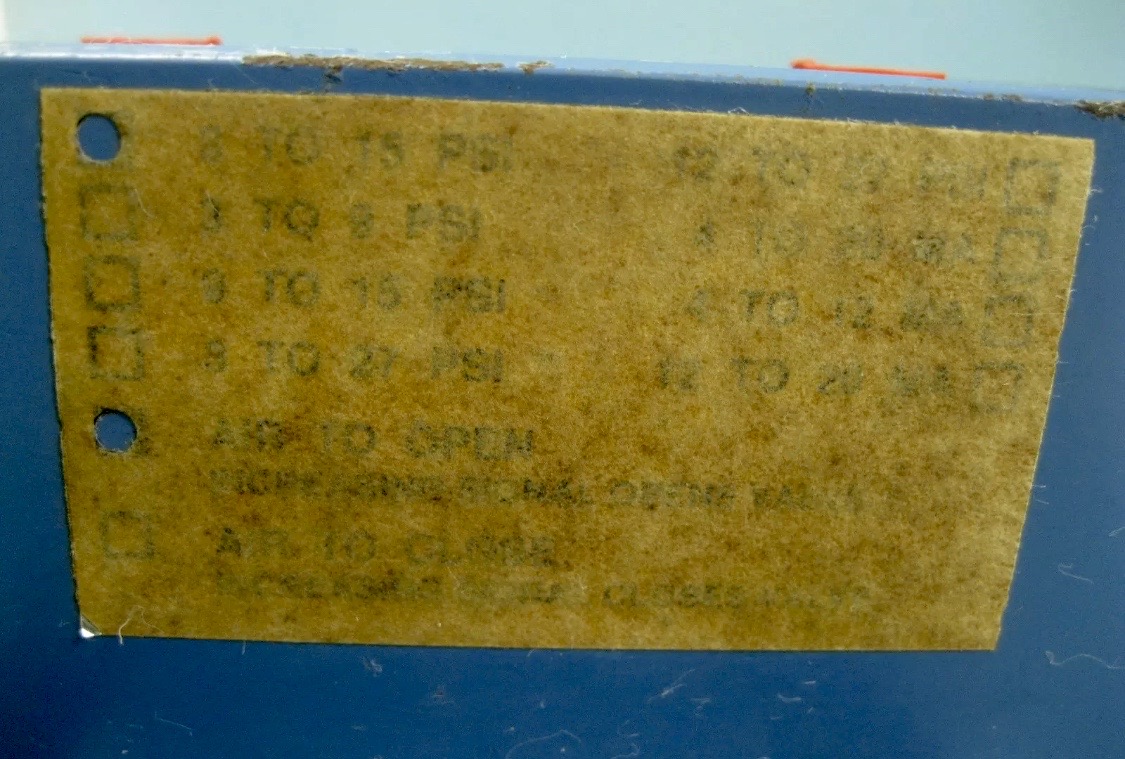 TO 15 PSI TO PSI
3 TO 9 PSI 4 TO 20 MA
9 TO 15 PSI 4 TO 12 MA
TO 27 PSI 12 TO 20 MA
AIR TO OPEN
INCREASING SIGNAL OPENS VALVE
AIR TO CLOSE
INCREASING SIGNAL CLOSES VALVE